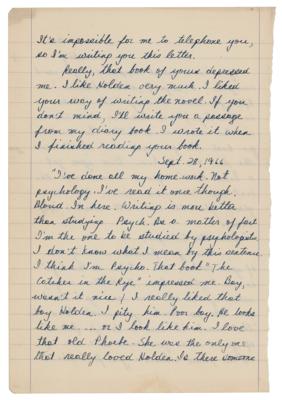 It's impossible for me to telephone you,
so I'm writing you this letter.
Really, that book of yours depressed
me. I like Holden very much. I liked
your way of writing the novel. If you
don't mind, I'll write you a passage
from my diary book. I wrote it when
I finished reading your book.
Sept. 28, 1966
"I've done all my home-work. Not
psychology. I've read it once though.
Aloud. In here. Writing is more better
than studying. Psych. As a matter of fact
I'm the one to be studied by psychologists.
I don't know what I mean by this sentence.
I think I'm Psycho. That book "The
Catcher in the Rye" impressed me. Boy,
wasn't it nice! I really liked that
boy Holden. I pity him. Poor boy. He looks
like me .... or I look like him. I love
that old Phoebe. She was the only one
that really loved Holden. Is there someone